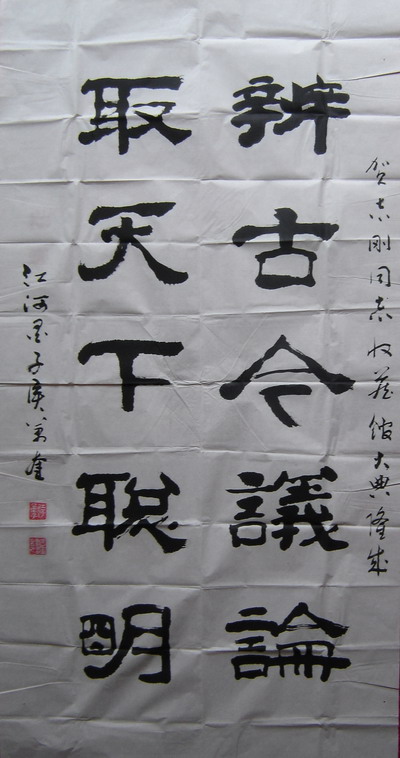 贺志刚同志收藏馆大典隆成
辨古今議論
取天下聪明
江河墨子侯万奎